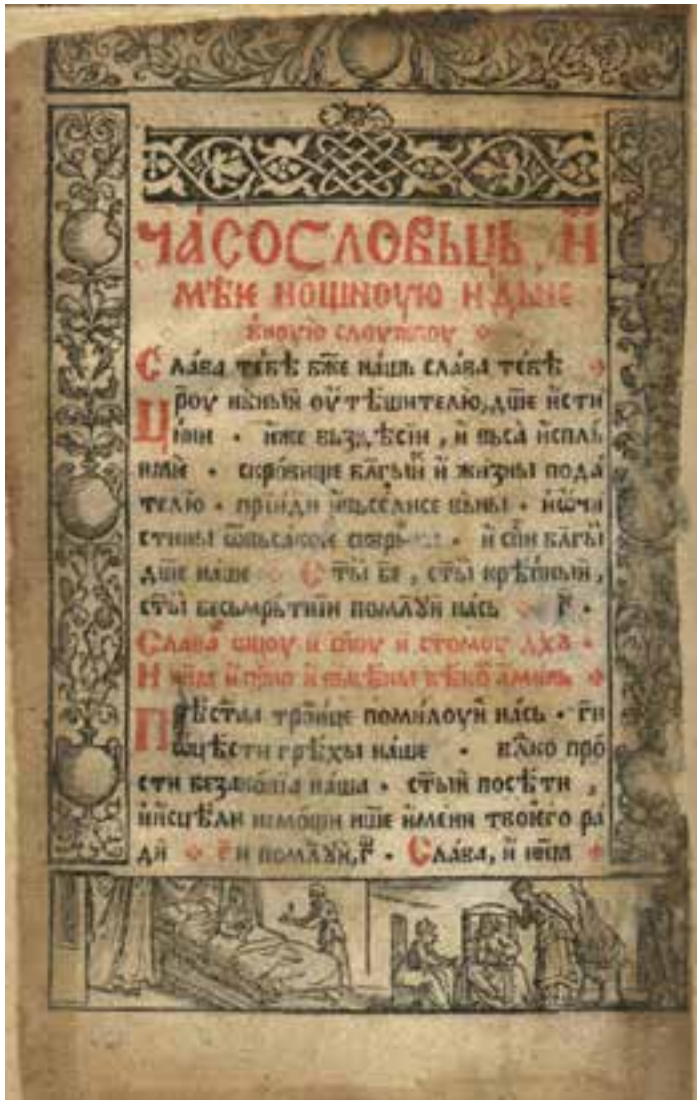 ЧА́СОСЛОВЬЦЬ, И҆
МѢЕ НОЩНОУЮ И ДЬНЕ
ВНОУЮ СЛОУЖБОУ
Сла́ва тебѣ бж҃е на́шь сла́ва тебѣ
Цр҃оу нбⷭ҇ный оу҆тѣшителю, дш҃е и҆сти
нни • и҆же вьздѣсіи, и҆ вьса̀ и҆спль
нѥ • скро́вище бл҃гы́и и҆ жи́зны пода́
телю • прїиди и҆
стины • и҆ сп҃си бл҃гы́
дш҃е наше Ст҃ы́ бе҃, ст҃ы́ крѣ́пкый,
ст҃ы́ бесьмрьтнїи поми́лꙋй на́сь г҃ •
Слава ѡц҃оу и сн҃оу и ст҃омоу дх҃ꙋ •
И нн҃ꙗ и҆ при́о и҆ вьвѣкы вѣкѡ́ а҆минь
Прѣст҃аа трои́це поми́лоуй на́сь • ги҃
ѡ҆цѣ́сти грѣхы на́ше • влⷣко про́
сти безако́нїа на́ша • ст҃ый посѣти,
и҆ и҆сцѣли не́мощи нш҃е и҆́мени твое҆го ра́
ди ги҃ поми́лꙋй, г҃ • Сла́ва, и҆ нн҃ꙗ